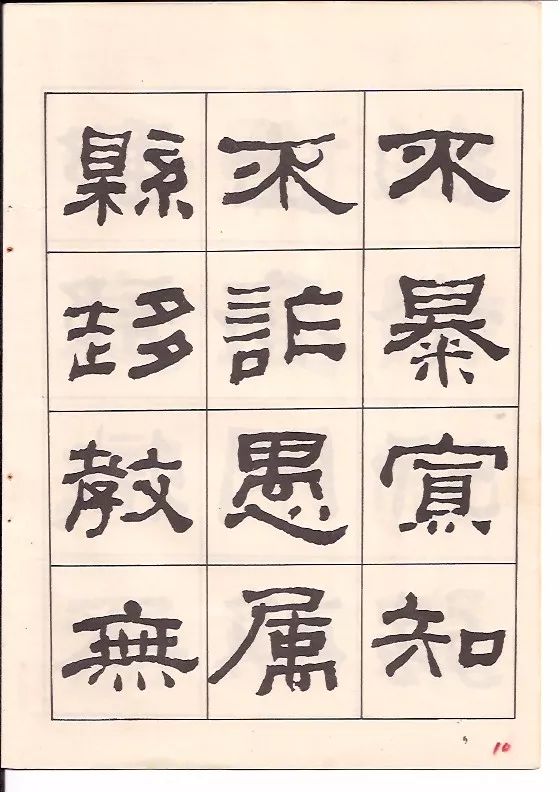 不暴寡知
不詐愚属
縣趍教無
10